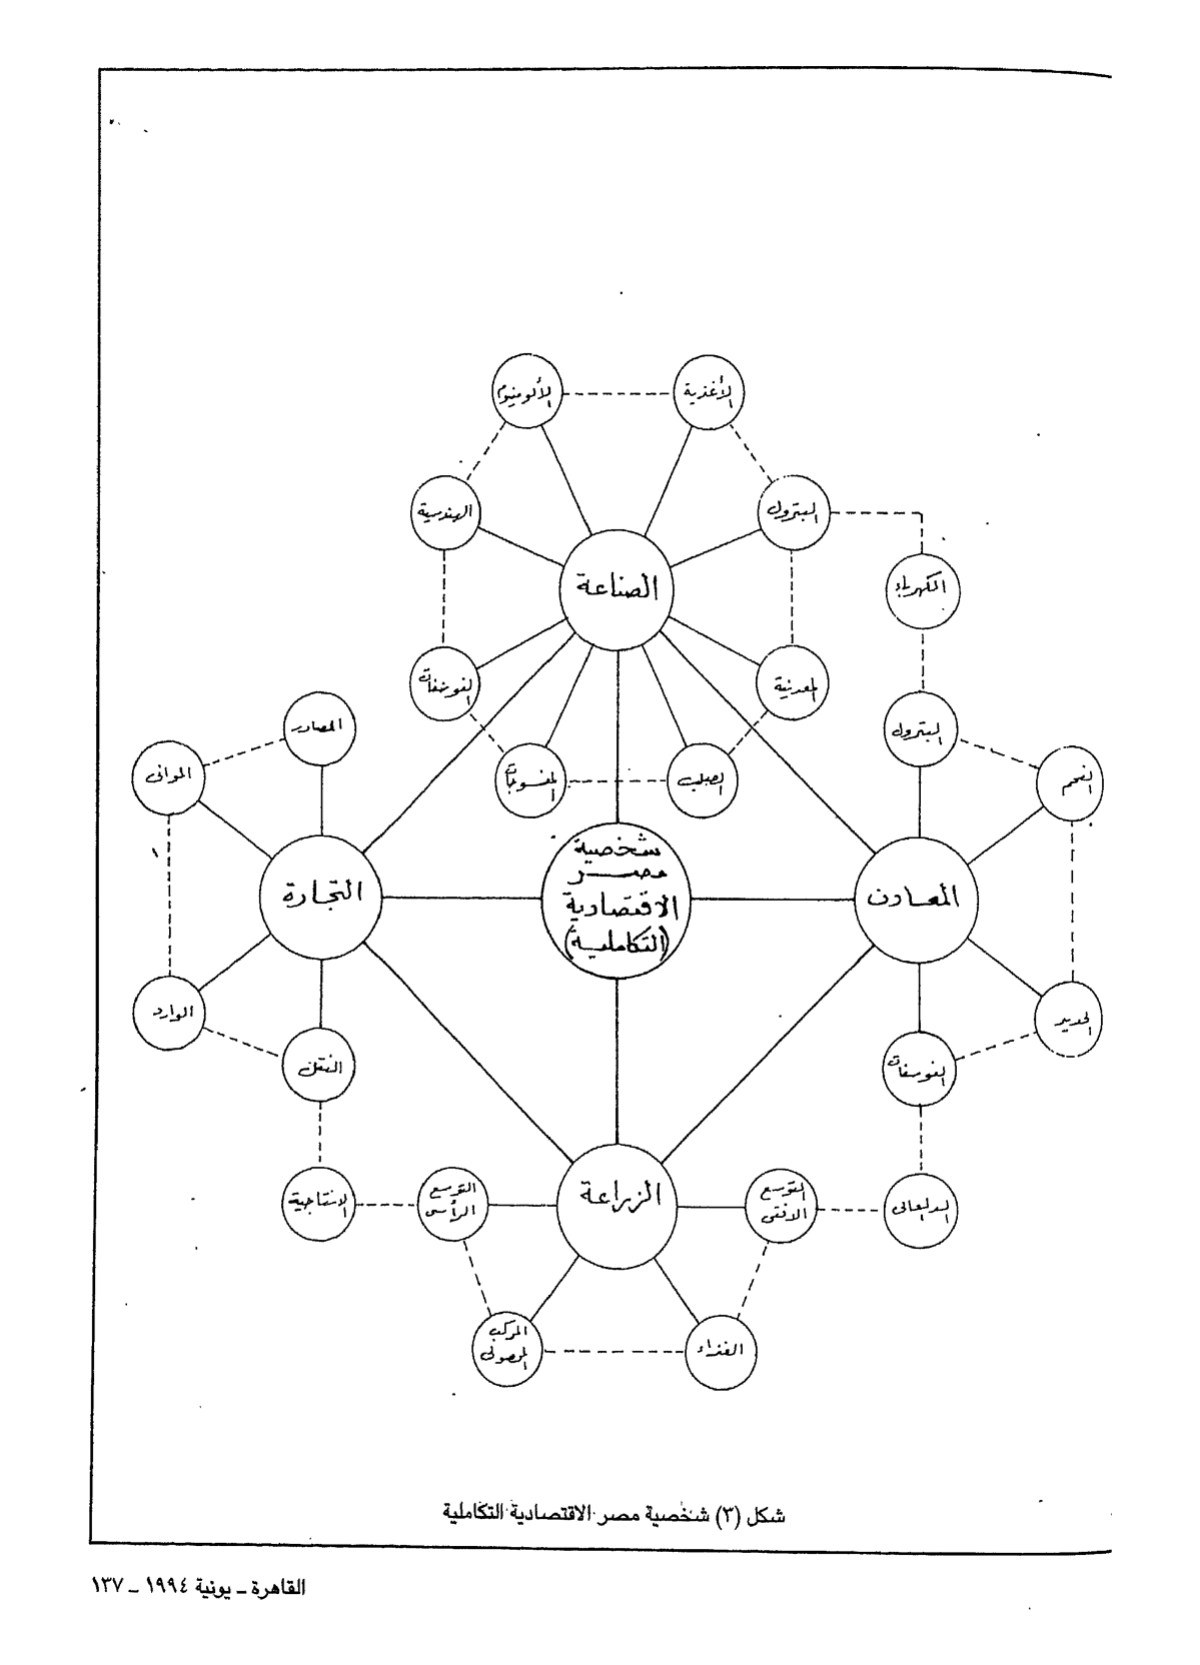 الألومنيوم
الأغذية
الهندسية
البترول
الصناعة
الكهرباء
الفوسفات
المعدنية
المصادر
البترول
الموانى
المنسوجات
الصلب
الفحم
شخصية
مصر
الاقتصادية
(التكاملية)
التجارة
المعادن
الوارد
الحديد
النقل
الفوسفات
الانتاجية
التوسع
الرأسى
الزراعة
التوسع
الافقى
المركب
المحصولى
الغذاء
شكل (٣) شخصية مصر الاقتصادية التكاملية
القاهرة ـ يونية ١٩٩٤ ـ ١٣٧